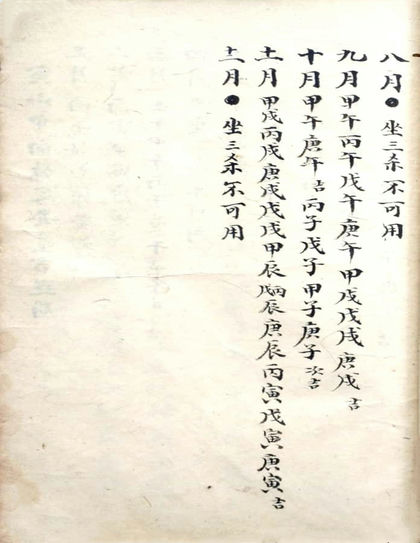 八月●坐三杀不可用
九月甲午丙午戊午庚午甲戌戊戌庚戌吉
十月甲午庚午吉丙子戊子甲子庚子次吉
十一月甲戌丙戌庚戌戊戌甲辰丙辰庚辰丙寅戊寅庚寅吉
十二月●坐三杀不可用